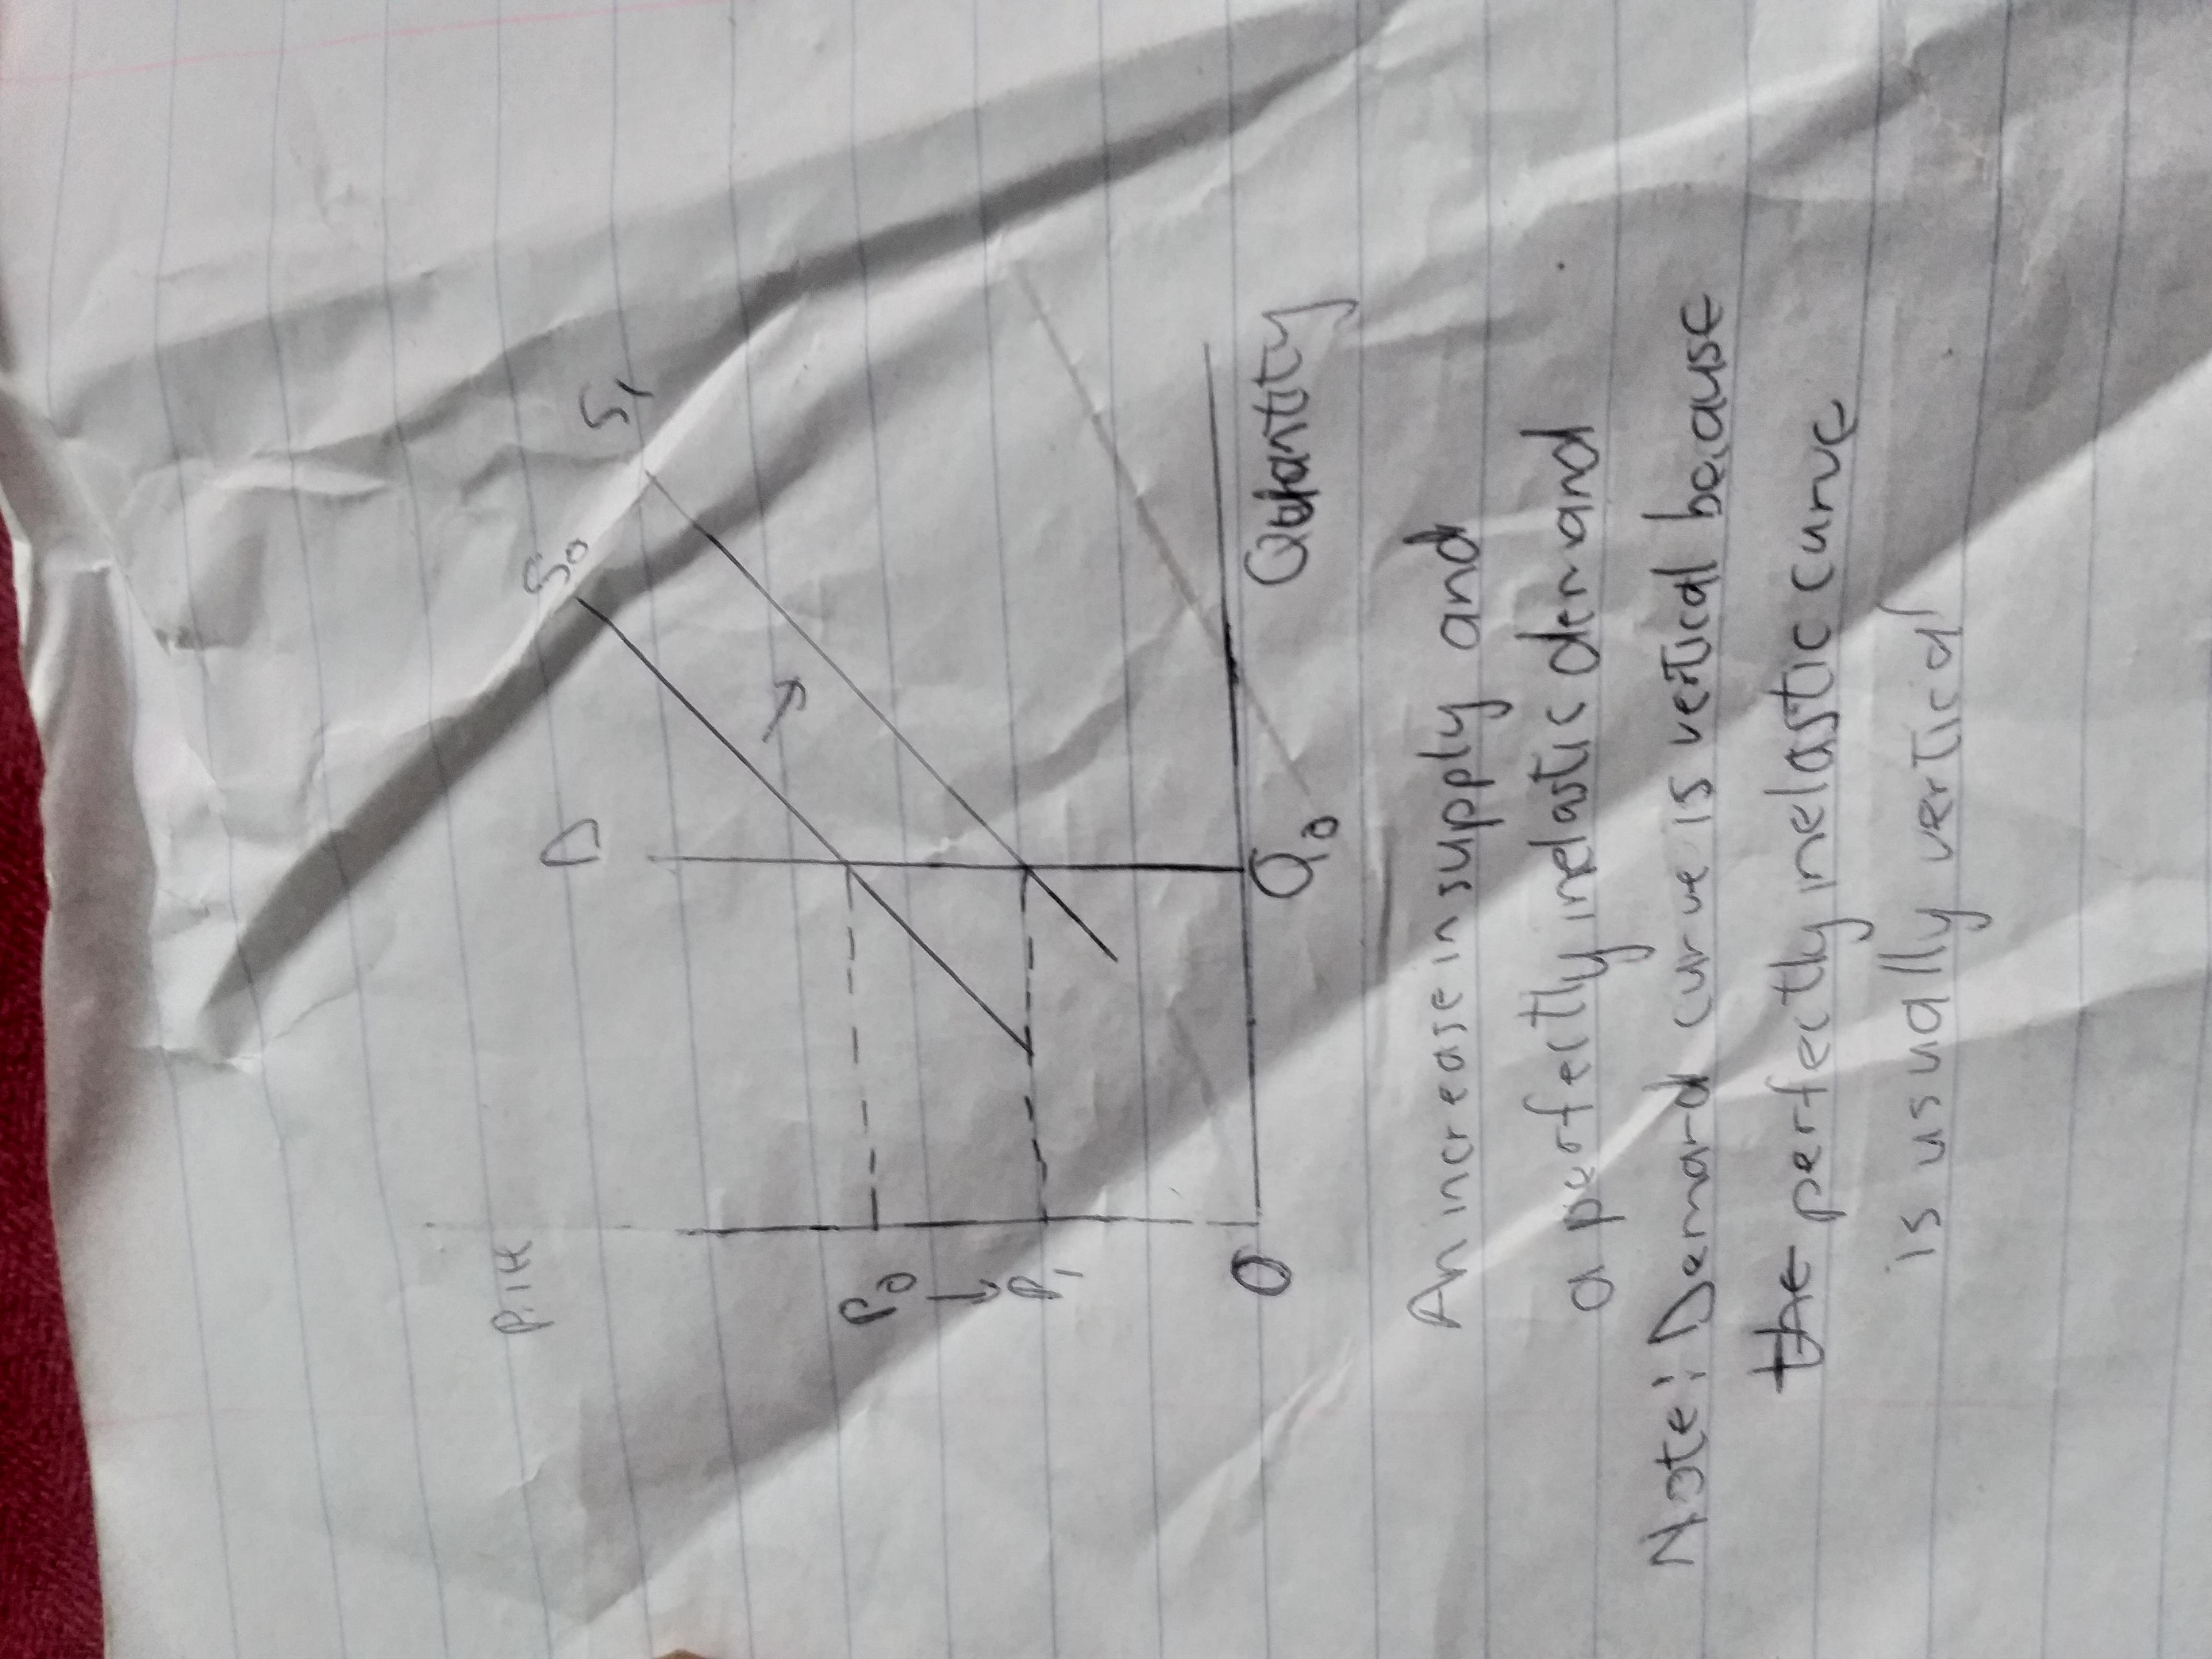 Price
D
S₀
S₁
P₀
P₁
O
Q₀
Quantity
An increase in supply and
a perfectly inelastic demand
Note: Demand curve is vertical because
the perfectly inelastic curve
is usually vertical